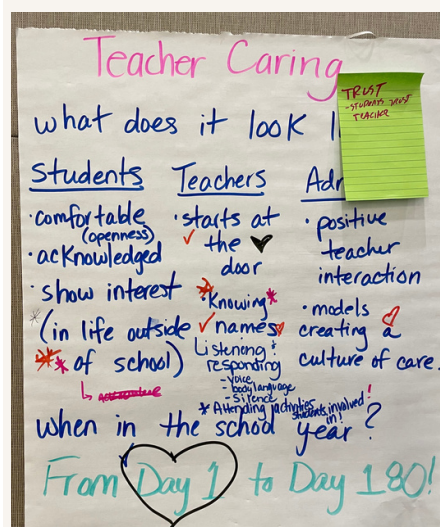 Teacher Caring
TRUST
-STUDENTS TRUST
TEACHER
what does it look l
Students Teachers Adr
•comfortable
(openness)
•acknowledged
•show interest
(in life outside
of school)
•starts at
the
door
•Knowing
names
Listening &
responding
-voice
-body language
-Silence
* Attending activities
students involved
in!
•positive
teacher
interaction
•models
creating a
culture of care.
when in the school year?
From Day 1 to Day 180!